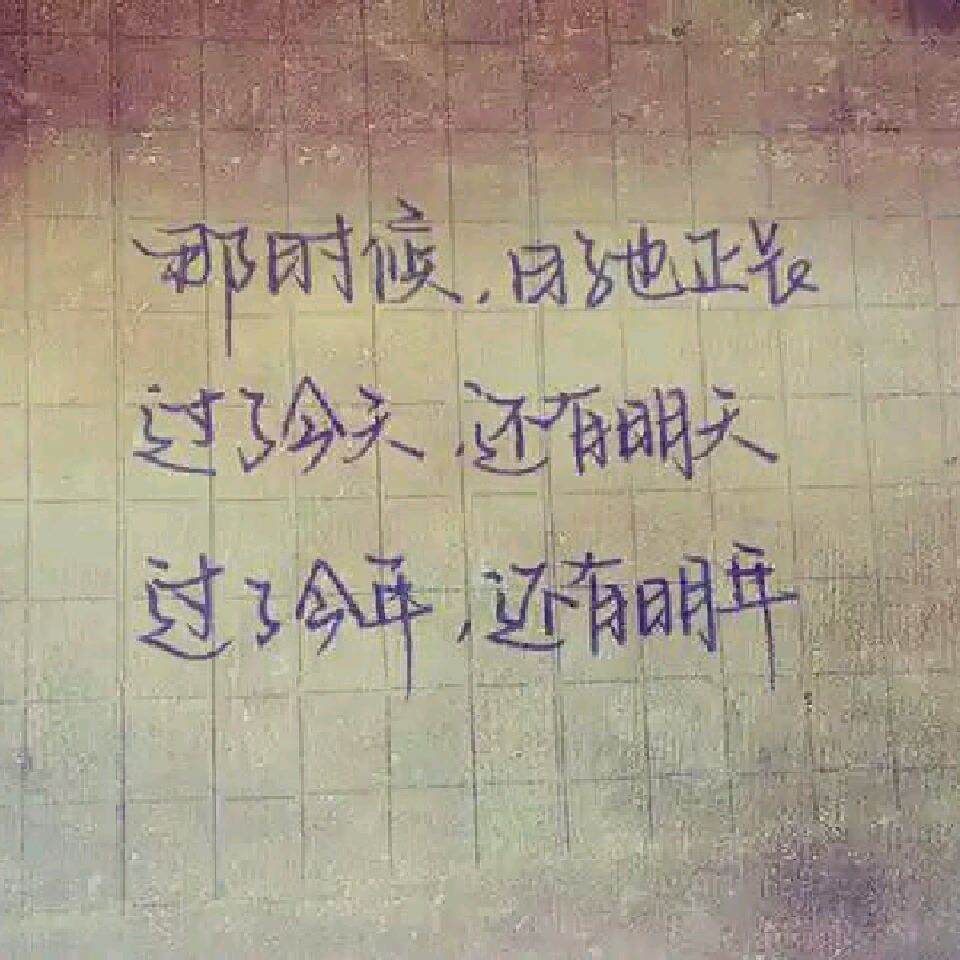 那时候,日子也正长
过了今天,还有明天
过了今年,还有明年